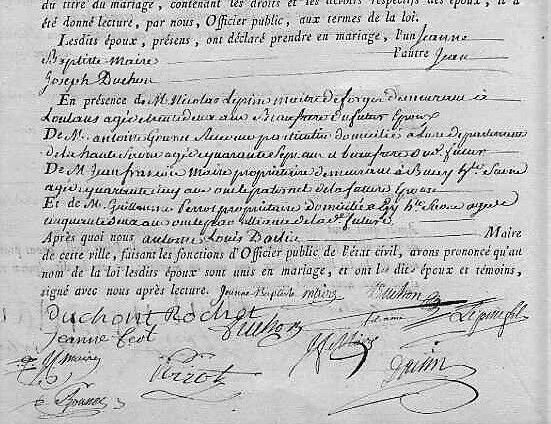 du titre du mariage, contenant les droits et les devoirs respectifs des époux, il a
été donné lecture, par nous, Officier public, aux termes de la loi.
Lesdits époux, présens, ont déclaré prendre en mariage, l'un Jeanne
Baptiste Maire l'autre Jean
Joseph Duchon
En présence de M. Nicolas Lépine maitre de forges demeurant à
agé de deux ans Beaufrere du futur Epoux
De M. antoine domicilié à Lure departement
de la haute Saone agé de quarante Sept ans beaufrere dudit futur
De M. Jean francois Maire propriétaire demeurant à Bucey hte Saone
agé de quarante cinq ans oncle paternel de la future Epouse
Et de M. Guillaume Perrot propriétaire domicilié à Gy hte Saone agé de
cinquante deux ans oncle par alliance de la dte future
Après quoi nous antoine Louis Maire
de cette ville, faisant les fonctions d'Officier public de l'état civil, avons prononcé qu'au
nom de la loi lesdits époux sont unis en mariage, et ont lesdits époux et témoins,
signé avec nous après lecture. Jeanne Baptiste Maire Duchon
Duchont Rochet Duchon Lépine
Jeanne
Maire